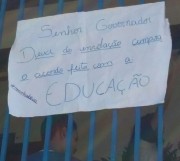 Senhor Governador
Dias de enrolação cumpra
o acordo feito com a
EDUCAÇÃO